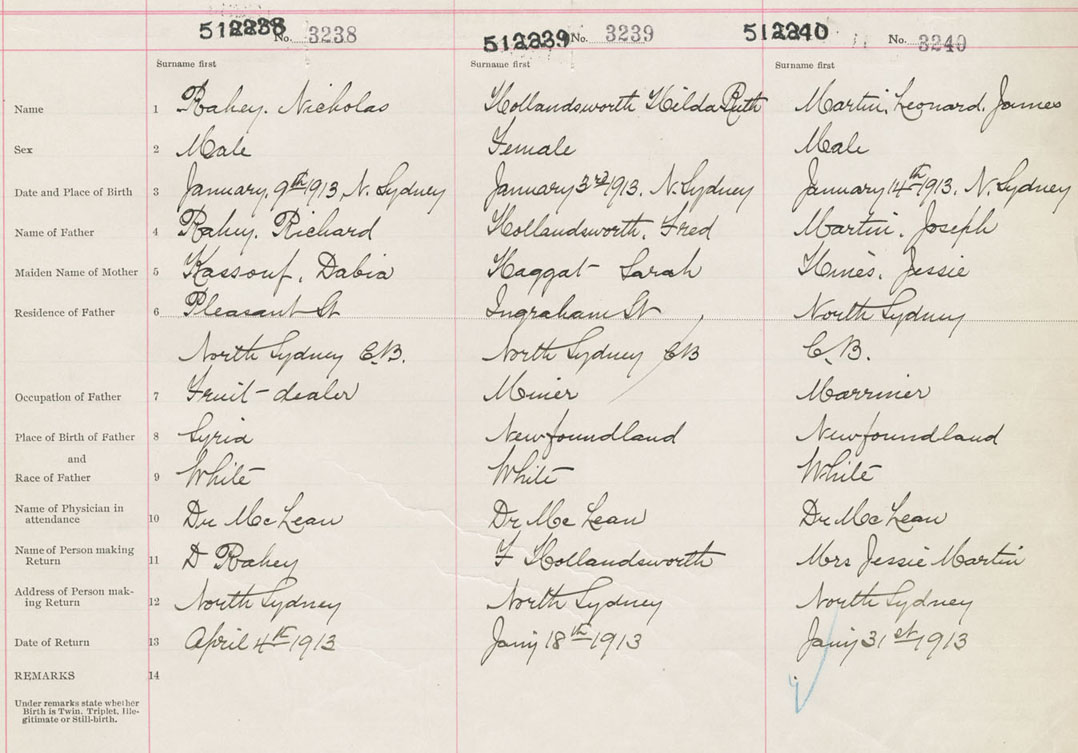 512238 No. 3238 512239 No. 3239 512240 No. 3240
Surname first Surname first Surname first
Name 1 Rahey. Nicholas Hollandsworth Hilda Ruth Martin, Leonard, James
Sex 2 Male Female Male
Date and Place of Birth 3 January, 9th 1913, N. Sydney January 3rd 1913. N. Sydney January 14th 1913. N. Sydney
Name of Father 4 Rahey. Richard Hollandsworth, Fred Martin, Joseph
Maiden Name of Mother 5 Kassouf, Dabia Haggat- Sarah Hines, Jessie
Residence of Father 6 Pleasant St Ingraham St North Sydney
North Sydney C.B. North Sydney CB C.B.
Occupation of Father 7 Fruit-dealer Miner Marriner
Place of Birth of Father 8 Syria Newfoundland Newfoundland
and
Race of Father 9 White White White
Name of Physician in
attendance 10 Dr McLean Dr McLean Dr McLean
Name of Person making
Return 11 D Rahey F Hollandsworth Mrs Jessie Martin
Address of Person mak-
ing Return 12 North Sydney North Sydney North Sydney
Date of Return 13 April 4th 1913 Jany 18th 1913 Jany 31st 1913
REMARKS 14
Under remarks state whether
Birth is Twin. Triplet. Ille-
gitimate or Still-birth.